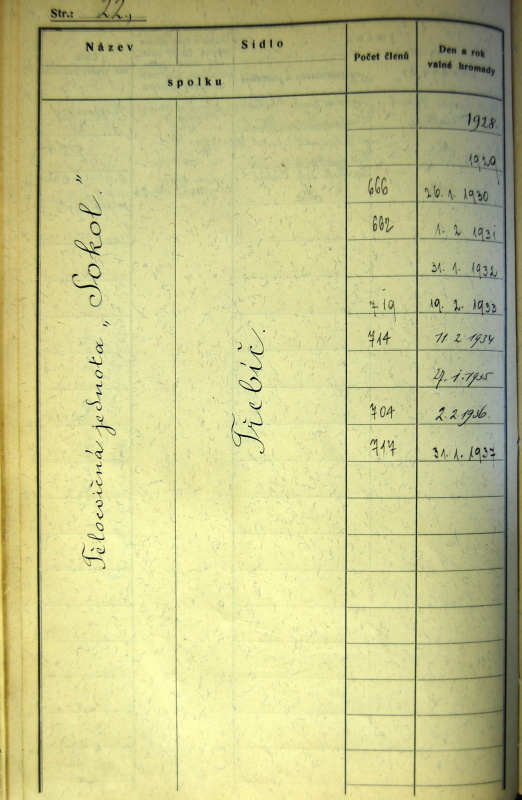 Str.: 22,
Název
Sídlo
spolku
Počet členů
Den a rok
valné hromady
Tělocvičná jednota „Sokol."
Třebíč.
1928.
1929
666 26. 1. 1930
662 1. 2. 1931
31. 1. 1932
719 19. 2. 1933
714 11 2 1934
27. 1. 1935
704 2. 2. 1936.
717 31. 1. 1937